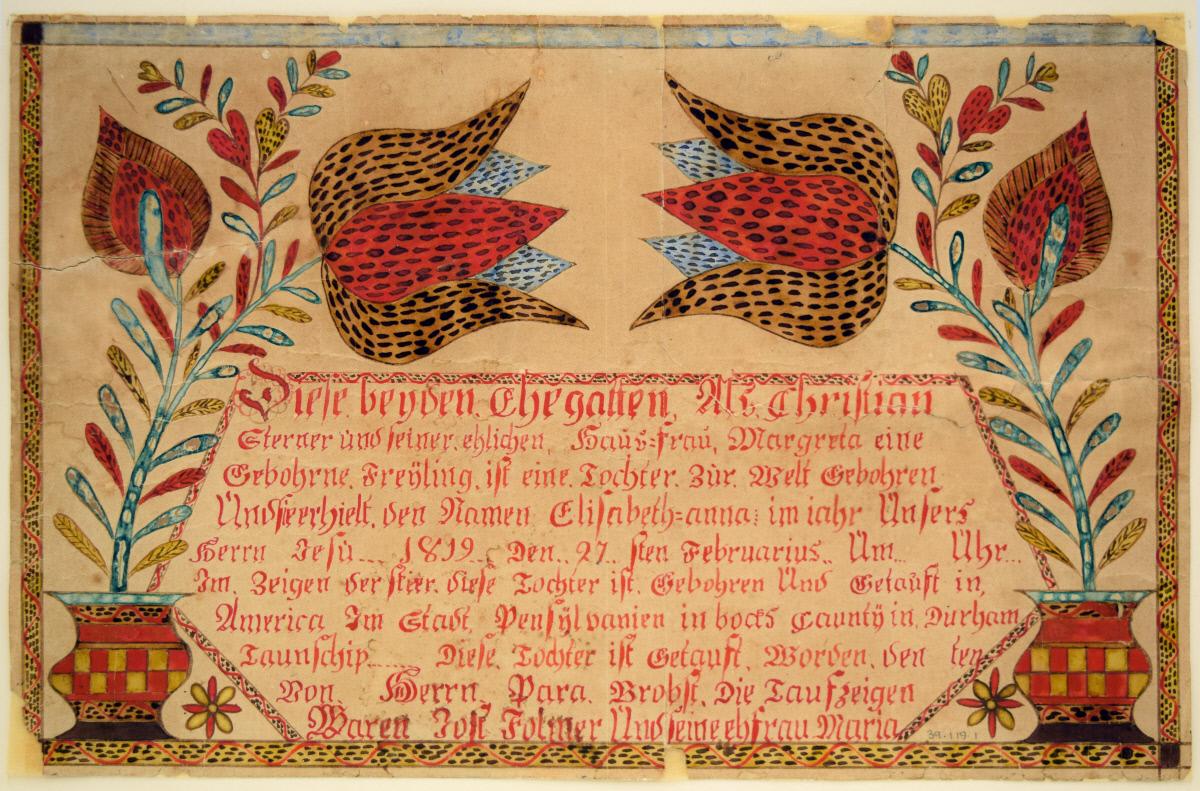 Diese beyden Ehegatten, Als Christian
Sterner und seiner ehlichen, Haus=frau, Margreta eine
Gebohrne Freÿling ist eine Tochter Zur Welt Gebohren
Und sie erhielt, den Namen Elisabeth=anna; im iahr Unsers
Herrn Jesu.... 1819.. Den.. 27.. sten Februarius.. Um... Uhr...
Im Zeigen der stier. diese Tochter ist Gebohren Und Getauft in,
America Im Stadt, Pensÿlvanien in bocks Cauntÿ in, Durham
Taunschip...... Diese Tochter ist Getauft, Worden, den ten
Von Herrn, Para. Brobst. Die Taufzeigen
Waren Jost Folmer Und seine ehfrau Maria
39-1.19.1